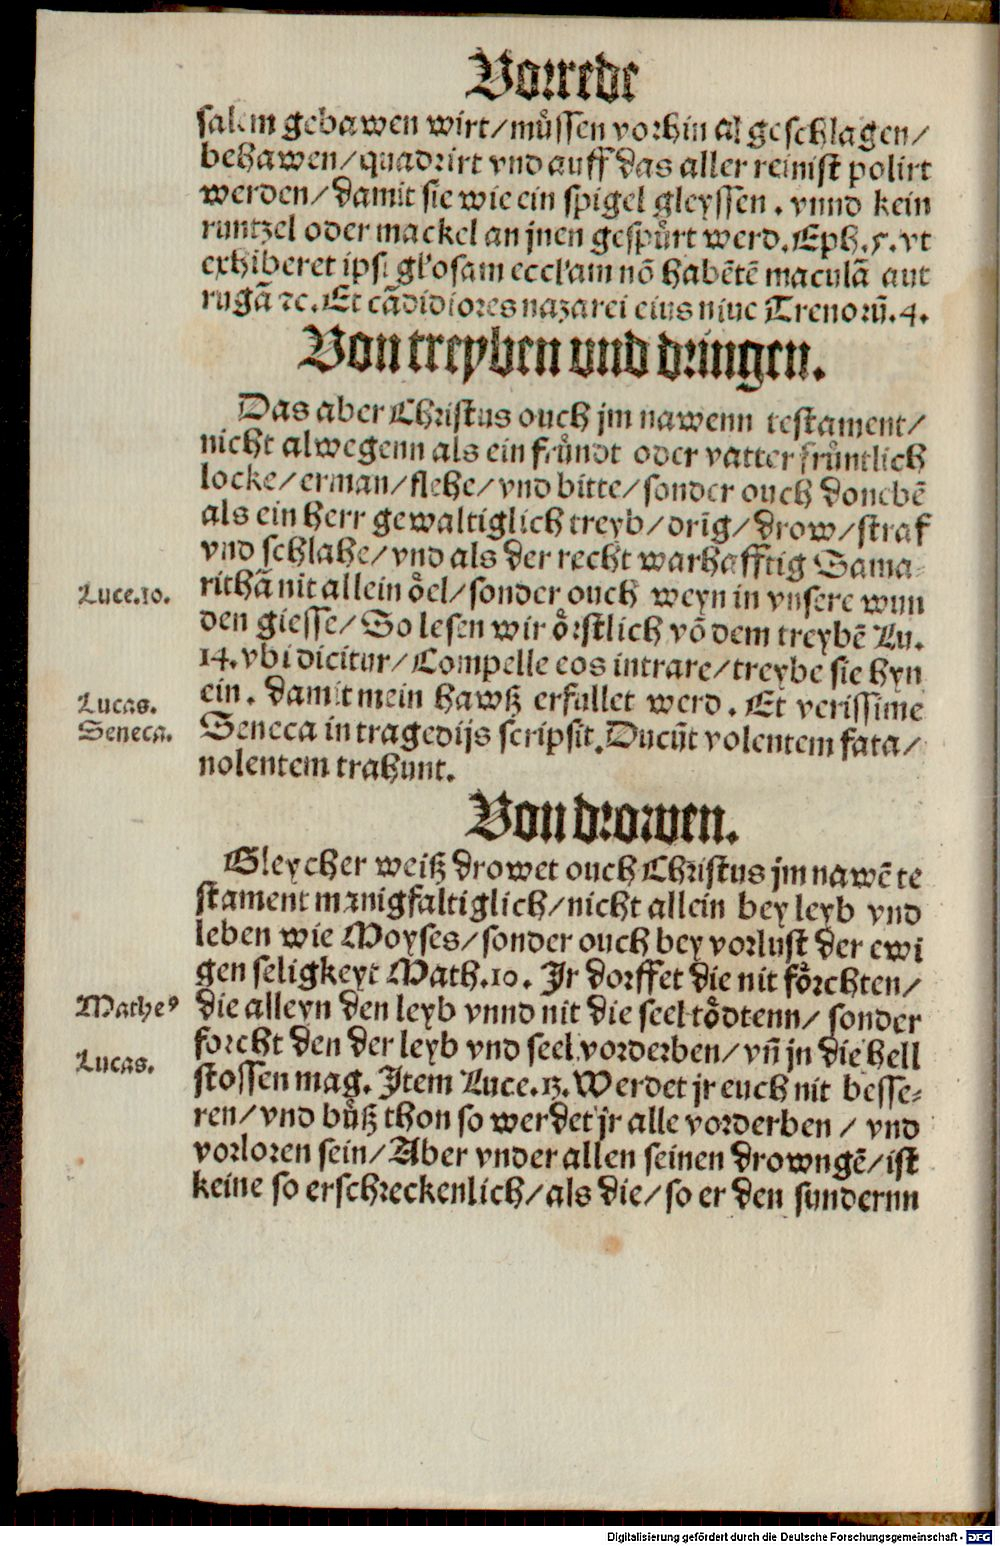 Vorrede
salem gebawen wirt/müssen vorhin al geschlagen/
behawen/quadrirt vnd auff das aller reinist polirt
werden/damit sie wie ein spigel gleyssen. vnnd kein
runtzel oder mackel an jnen gespürt werd. Eph. 5. vt
exhiberet ipsi gl'osam eccl'am nō habētē maculā aut
rugā ꝛc. Et cādidiores nazarei eius niue Trenorū. 4.
Von treyben vnd dringen.
Das aber Christus ouch jm nawenn testament/
nicht alwegenn als ein fründt oder vatter früntlich
locke/erman/flehe/vnd bitte/sonder ouch donebē
als ein herr gewaltiglich treyb/drīg/drow/straf
vnd schlahe/vnd als der recht warhafftig Sama-
Luce.10. rithā nit allein öel/sonder ouch weyn in vnsere wun
den giesse/So lesen wir örstlich vō dem treybē Lu.
14. vbi dicitur/Compelle eos intrare/treybe sie hyn
Lucas. ein. damit mein hawß erfullet werd. Et verissime
Seneca. Seneca in tragedijs scripsit. Ducūt volentem fata/
nolentem trahunt.
Von drowen.
Gleycher weiß drowet ouch Christus jm nawē te
stament manigfaltiglich/nicht allein bey leyb vnd
leben wie Moyses/sonder ouch bey vorlust der ewi
gen seligkeyt Math. 10. Jr dorffet die nit förchten/
Matheꝰ die alleyn den leyb vnnd nit die seel tödtenn/ sonder
forcht den der leyb vnd seel vorderben/vñ jn die hell
Lucas. stossen mag. Jtem Luce. 13. Werdet jr euch nit besse-
ren/vnd büß thon so werdet jr alle vorderben / vnd
vorloren sein/Aber vnder allen seinen drowngē/ist
keine so erschreckenlich/als die/so er den sundernn
Digitalisierung gefördert durch die Deutsche Forschungsgemeinschaft - DFG